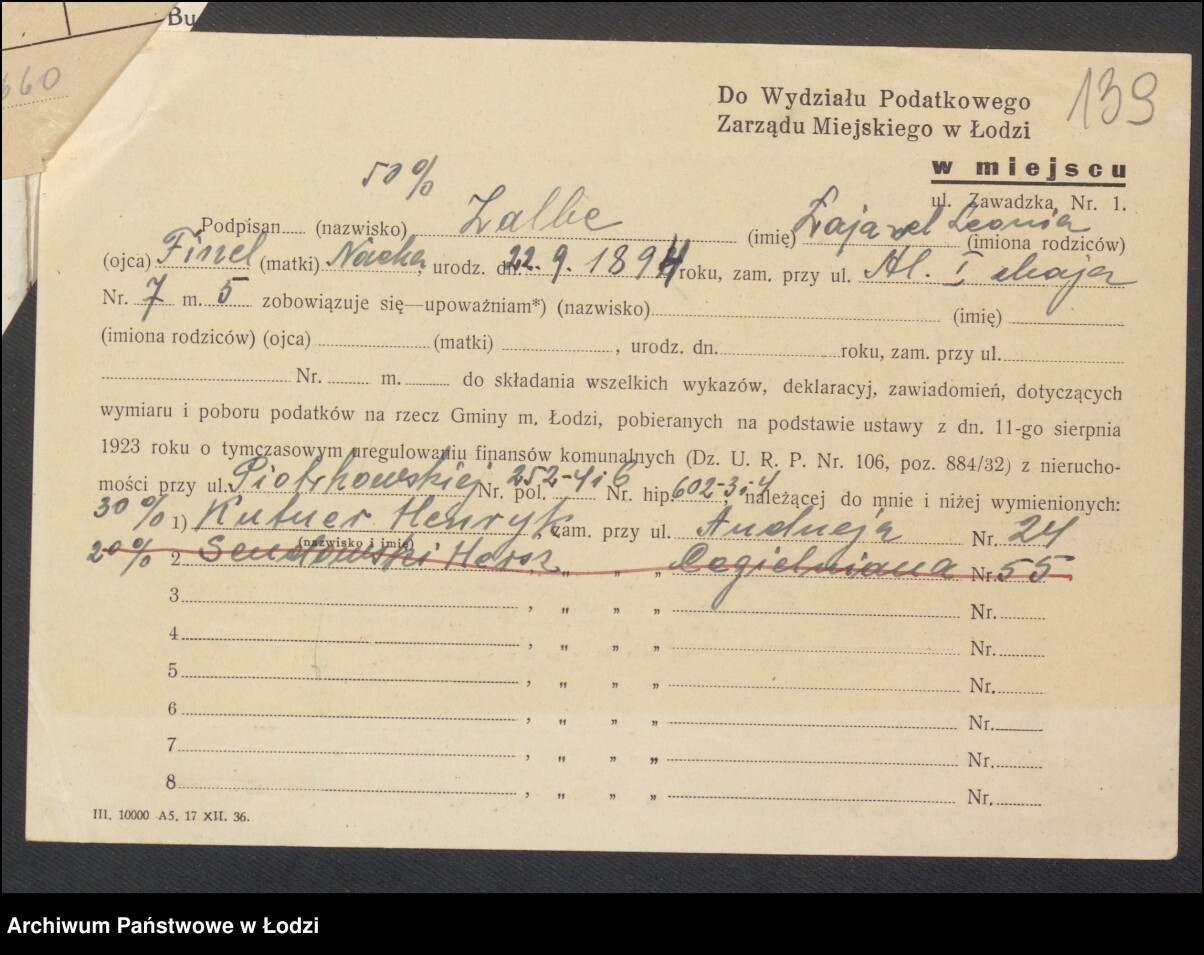 Bu
660
Do Wydziału Podatkowego
139
Zarządu Miejskiego w Łodzi
w miejscu
ul. Zawadzka, Nr. 1.
50 %
Podpisan (nazwisko) Zalbe (imię) Łajazel Leonia (imiona rodziców)
(ojca) (matki) Nacha, urodz. dn. 22. 9. 1894 roku, zam. przy ul. Al. I Maja
Nr. 7 m. 5 zobowiązuje się—upoważniam*) (nazwisko) (imię)
(imiona rodziców) (ojca) (matki) , urodz. dn. roku, zam. przy ul.
Nr. m. do składania wszelkich wykazów, deklaracyj, zawiadomień, dotyczących
wymiaru i poboru podatków na rzecz Gminy m. Łodzi, pobieranych na podstawie ustawy z dn. 11-go sierpnia
1923 roku o tymczasowym uregulowaniu finansów komunalnych (Dz. U. R. P. Nr. 106, poz. 884/32) z nierucho-
mości przy ul. Piotrkowskiej Nr. pol. 252-4 i 6 Nr. hip. 602-3 i 4, należącej do mnie i niżej wymienionych:
30 % 1) Kutner Henryk, zam. przy ul. Andrzeja Nr. 24
(nazwisko i imię)
20 % 2 Sendowski Hersz, „ „ „ Cegielniana Nr. 55
3 , „ „ „ Nr.
4 , „ „ „ Nr.
5 , „ „ „ Nr.
6 , „ „ „ Nr.
7 , „ „ „ Nr.
8 , „ „ „ Nr.
III. 10000 A5. 17 XII. 36.
Archiwum Państwowe w Łodzi